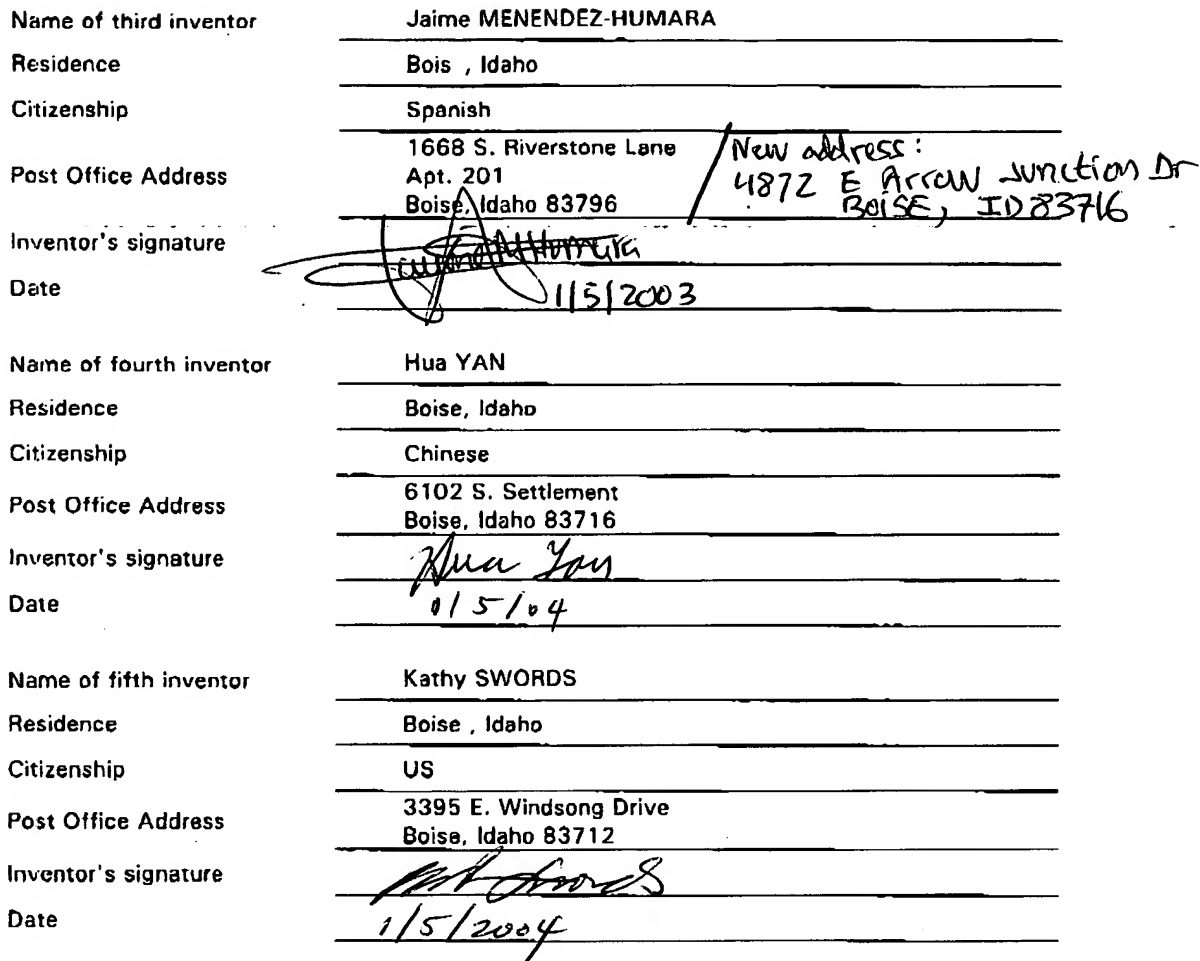 Name of third inventor Jaime MENENDEZ-HUMARA
Residence Bois , Idaho
Citizenship Spanish
Post Office Address 1668 S. Riverstone Lane
Apt. 201
Boise, Idaho 83796
New address:
4872 E Arrow Junction Dr
BOISE, ID 83716
Inventor's signature
Date 1/5/2003
Name of fourth inventor Hua YAN
Residence Boise, Idaho
Citizenship Chinese
Post Office Address 6102 S. Settlement
Boise, Idaho 83716
Inventor's signature Hua Yan
Date 1/5/04
Name of fifth inventor Kathy SWORDS
Residence Boise , Idaho
Citizenship US
Post Office Address 3395 E. Windsong Drive
Boise, Idaho 83712
Inventor's signature Swords
Date 1/5/2004